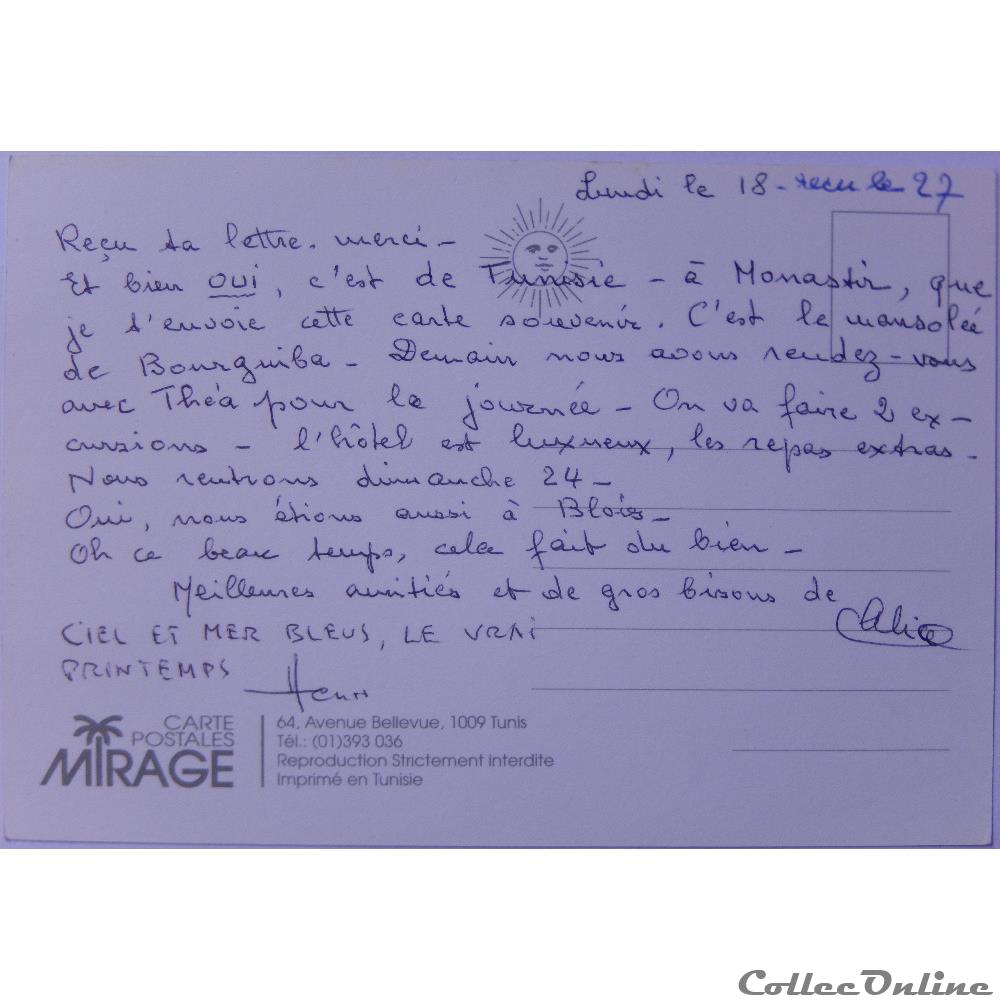 Lundi le 18 - reçu le 27
Reçu ta lettre. merci -
Et bien OUI, c'est de Tunisie - à Monastir, que
je t'envoie cette carte souvenir. C'est le mausolée
de Bourguiba - Demain nous avons rendez-vous
avec Théa pour la journée - On va faire 2 ex-
cursions - l'hôtel est luxueux, les repas extras -
Nous rentrons dimanche 24 -
Oui, nous étions aussi à Blois -
Oh ce beau temps, cela fait du bien -
Meilleures amitiés et de gros bisous de
Alice
CIEL ET MER BLEUS, LE VRAI
PRINTEMPS
Henri
CARTE
POSTALES
MIRAGE
64, Avenue Bellevue, 1009 Tunis
Tél.: (01)393 036
Reproduction Strictement interdite
Imprimé en Tunisie
CollecOnline